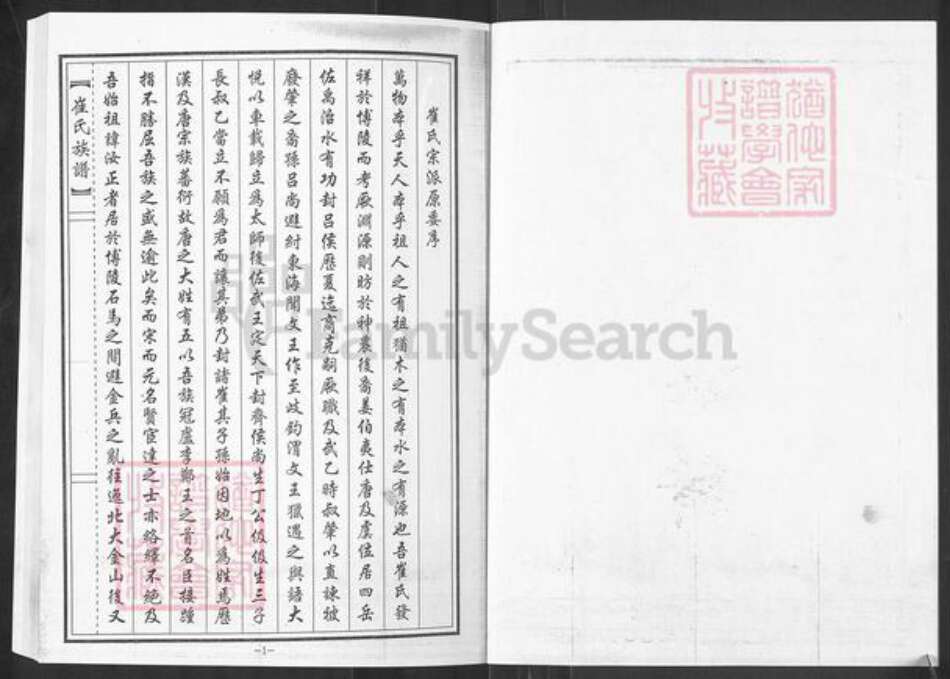 崔氏宗派原委序
萬物本乎天人本乎祖人之有祖猶木之有本水之有源也吾崔氏發
祥於博陵而考厥淵源則昉於神農後裔姜伯夷仕唐及虞位居四岳
佐禹治水有功封呂侯歷夏迄商克嗣厥職及武乙時叔肇以直諫被
廢肇之裔孫呂尚避紂東海聞文王作至岐釣渭文王獵遇之與語大
悅以車載歸立為太師後佐武王定天下封齊侯尚生丁公伋伋生三子
長叔乙當立不願為君而讓其弟乃封諸崔其子孫始因地以為姓焉歷
漢及唐宗族蕃衍故唐之大姓有五以吾族冠盧李鄭王之首名臣接踵
指不勝屈吾族之盛無逾此矣而宋而元名賢宦達之士亦絡繹不絕及
吾始祖諱汝正者居於博陵石馬之間避金兵之亂往逸北大金山後又
【崔氏族譜】
-1-
猶他家
譜學會
收藏
FamilySearch